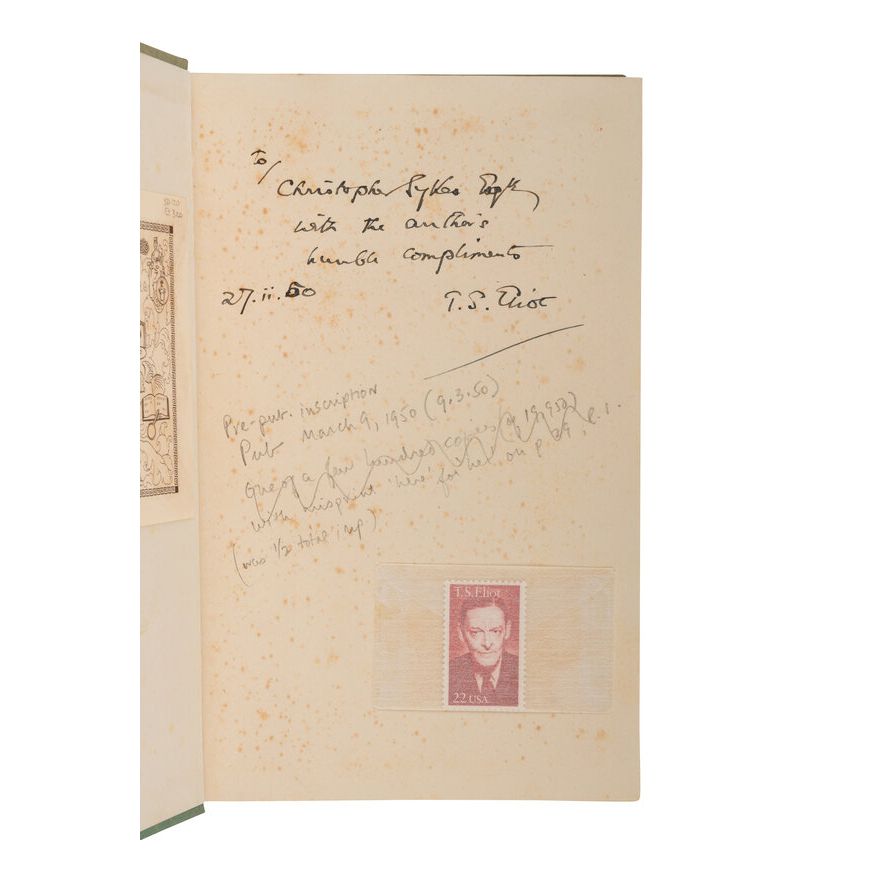 to/
Christopher Sykes Esqre
with the author's
humble compliments
27.ii.50
T. S. Eliot
Pre-pub. inscription
Pub March 9, 1950 (9.3.50)
One of a few hundred copies
with misprint 'here' for her on p. 29, l. 1.
(was 1/2 total imp)
T.S. Eliot
22 USA